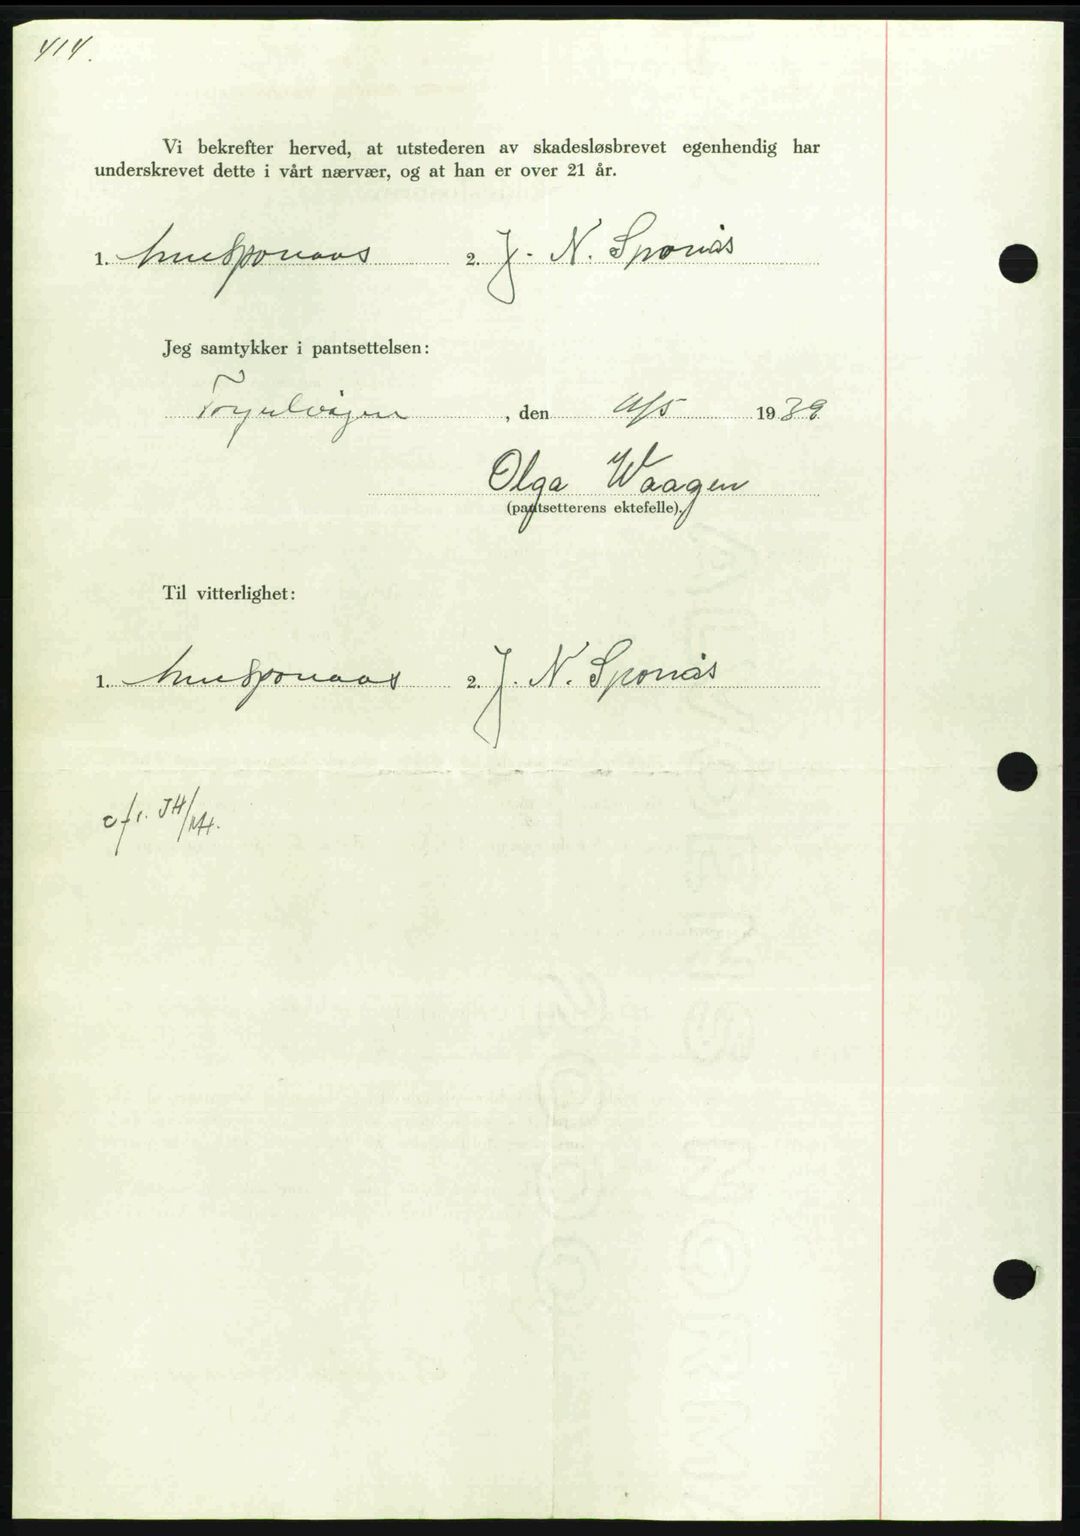 414.
Vi bekrefter herved, at utstederen av skadesløsbrevet egenhendig har
underskrevet dette i vårt nærvær, og at han er over 21 år.
1. Sponaas 2. J. N. Sponås
Jeg samtykker i pantsettelsen:
, den 1939
Olga Waagen
(pantsetterens ektefelle).
Til vitterlighet:
1. Sponaas 2. J. N. Sponås